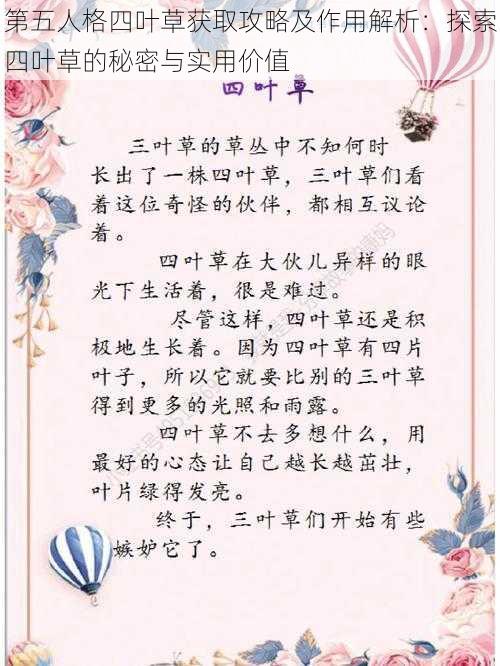 第五人格四叶草获取攻略及作用解析：探索
四叶草的秘密与实用价值
四叶草
三叶草的草丛中不知何时
长出了一株四叶草，三叶草们看
着这位奇怪的伙伴，都相互议论
着。
四叶草在大伙儿异样的眼
光下生活着，很是难过。
尽管这样，四叶草还是积
极地生长着。因为四叶草有四片
叶子，所以它就要比别的三叶草
得到更多的光照和雨露。
四叶草不去多想什么，用
最好的心态让自己越长越茁壮，
叶片绿得发亮。
终于，三叶草们开始有些
嫉妒它了。